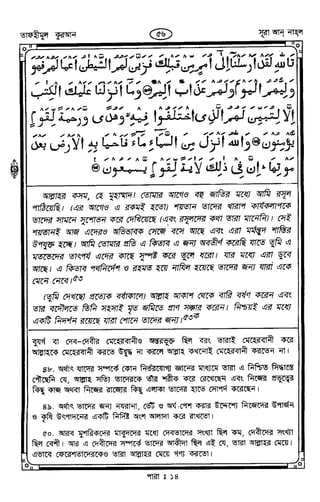 তাফহীমুল কুরআন
৫৬
সূরা আন্ নাহল
تَاللّٰهِ لَقَدْ اَرْسَلْنَآ اِلٰٓى اُمَمٍ مِّنْ قَبْلِكَ فَزَيَّنَ لَهُمُ الشَّيْطٰنُ اَعْمَالَهُمْ فَهُوَ
وَلِيُّهُمُ الْيَوْمَ وَلَهُمْ عَذَابٌ اَلِيْمٌ ۞ وَمَآ اَنْزَلْنَا عَلَيْكَ الْكِتٰبَ
اِلَّا لِتُبَيِّنَ لَهُمُ الَّذِى اخْتَلَفُوْا فِيْهِ ۙ وَهُدًى وَّرَحْمَةً لِّقَوْمٍ
يُّؤْمِنُوْنَ ۞ وَاللّٰهُ اَنْزَلَ مِنَ السَّمَآءِ مَآءً فَاَحْيَا بِهِ الْاَرْضَ بَعْدَ
مَوْتِهَا ؕ اِنَّ فِىْ ذٰلِكَ لَاٰيَةً لِّقَوْمٍ يَّسْمَعُوْنَ ۞
আল্লাহর কসম, হে মুহাম্মাদ! তোমার আগেও বহু জাতির মধ্যে আমি রসূল
পাঠিয়েছি। (এর আগেও এ রকমই হতো) শয়তান তাদের খারাপ কার্যকলাপকে
তাদের সামনে সুশোভন করে দেখিয়েছে (এবং রসূলদের কথা তারা মানেনি)। সেই
শয়তানই আজ এদেরও অভিভাবক সেজে বসে আছে এবং এরা মর্মন্তুদ শাস্তির
উপযুক্ত হচ্ছে। আমি তোমার প্রতি এ কিতাব এ জন্য অবতীর্ণ করেছি যাতে তুমি এ
মতভেদের তাৎপর্য এদের কাছে সুস্পষ্ট করে তুলে ধরো। যার মধ্যে এরা ডুবে
আছে। এ কিতাব পথনির্দেশ ও রহমত হয়ে নাযিল হয়েছে তাদের জন্য যারা একে
মেনে নেবে।৫৩
(তুমি দেখছো প্রত্যেক বর্ষাকালে) আল্লাহ আকাশ থেকে বারি বর্ষণ করেন এবং
তার বদৌলতে তিনি সহসাই মৃত জমিতে প্রাণ সঞ্চার করেন। নিশ্চয়ই এর মধ্যে
একটি নিদর্শন রয়েছে যারা শোনে তাদের জন্য।৫৩ক
বুযর্গ বা দেব-দেবীর মেহেরবানীও অন্তরভুক্ত ছিল বরং তারাই মেহেরবানী করে
আল্লাহকে মেহেরবানী করতে উদ্বুদ্ধ না করলে আল্লাহ কখনোই মেহেরবানী করতেন না।
৪৮. অর্থাৎ যাদের সম্পর্কে কোন নির্ভরযোগ্য জ্ঞানের মাধ্যমে তারা এ নিশ্চিত সিদ্ধান্তে
পৌঁছেনি যে, আল্লাহ সত্যি তাদেরকে তাঁর শরীক করে রেখেছেন এবং নিজের প্রভুত্বের
কিছু কাজ অথবা নিজের রাজ্যের কিছু এলাকা তাদের হাতে সোপর্দ করেছেন।
৪৯. অর্থাৎ তাদের জন্য নযরানা, ভেট ও অর্ঘ পেশ করার উদ্দেশ্যে নিজেদের উপার্জন
ও কৃষি উৎপাদনের একটি নির্দিষ্ট অংশ আলাদা করে রাখতো।
৫০. আরব মুশরিকদের মাবুদদের মধ্যে দেবতাদের সংখ্যা ছিল কম, দেবীদের সংখ্যা
ছিল বেশী। আর এ দেবীদের সম্পর্কে তাদের আকীদা ছিল এই যে, তারা আল্লাহর মেয়ে।
এভাবে ফেরেশতাদেরকেও তারা আল্লাহর মেয়ে গণ্য করতো।
পারা ঃ ১৪